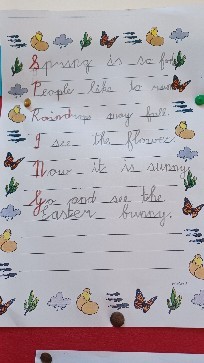 Spring is so fun
People like to run.
Raindrops may fall.
I see the flower.
Now it is sunny
Go and see the
Easter bunny.